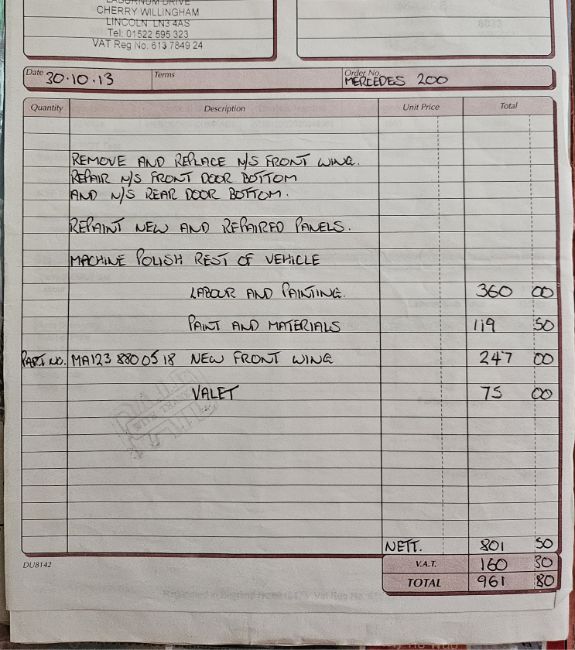 LABURNUM DRIVE
CHERRY WILLINGHAM
LINCOLN LN3 4AS
Tel: 01522 595 323
VAT Reg No. 613 7849 24
Date 30.10.13 Terms Order No. MERCEDES 200
Quantity Description Unit Price Total
REMOVE AND REPLACE N/S FRONT WING.
REPAIR N/S FRONT DOOR BOTTOM
AND N/S REAR DOOR BOTTOM.
REPAINT NEW AND REPAIRED PANELS.
MACHINE POLISH REST OF VEHICLE
LABOUR AND PAINTING. 360 00
PAINT AND MATERIALS 119 50
PART NO. MA123 880 05 18 NEW FRONT WING 247 00
VALET 75 00
NETT. 801 50
DU8142 V.A.T. 160 30
TOTAL 961 80